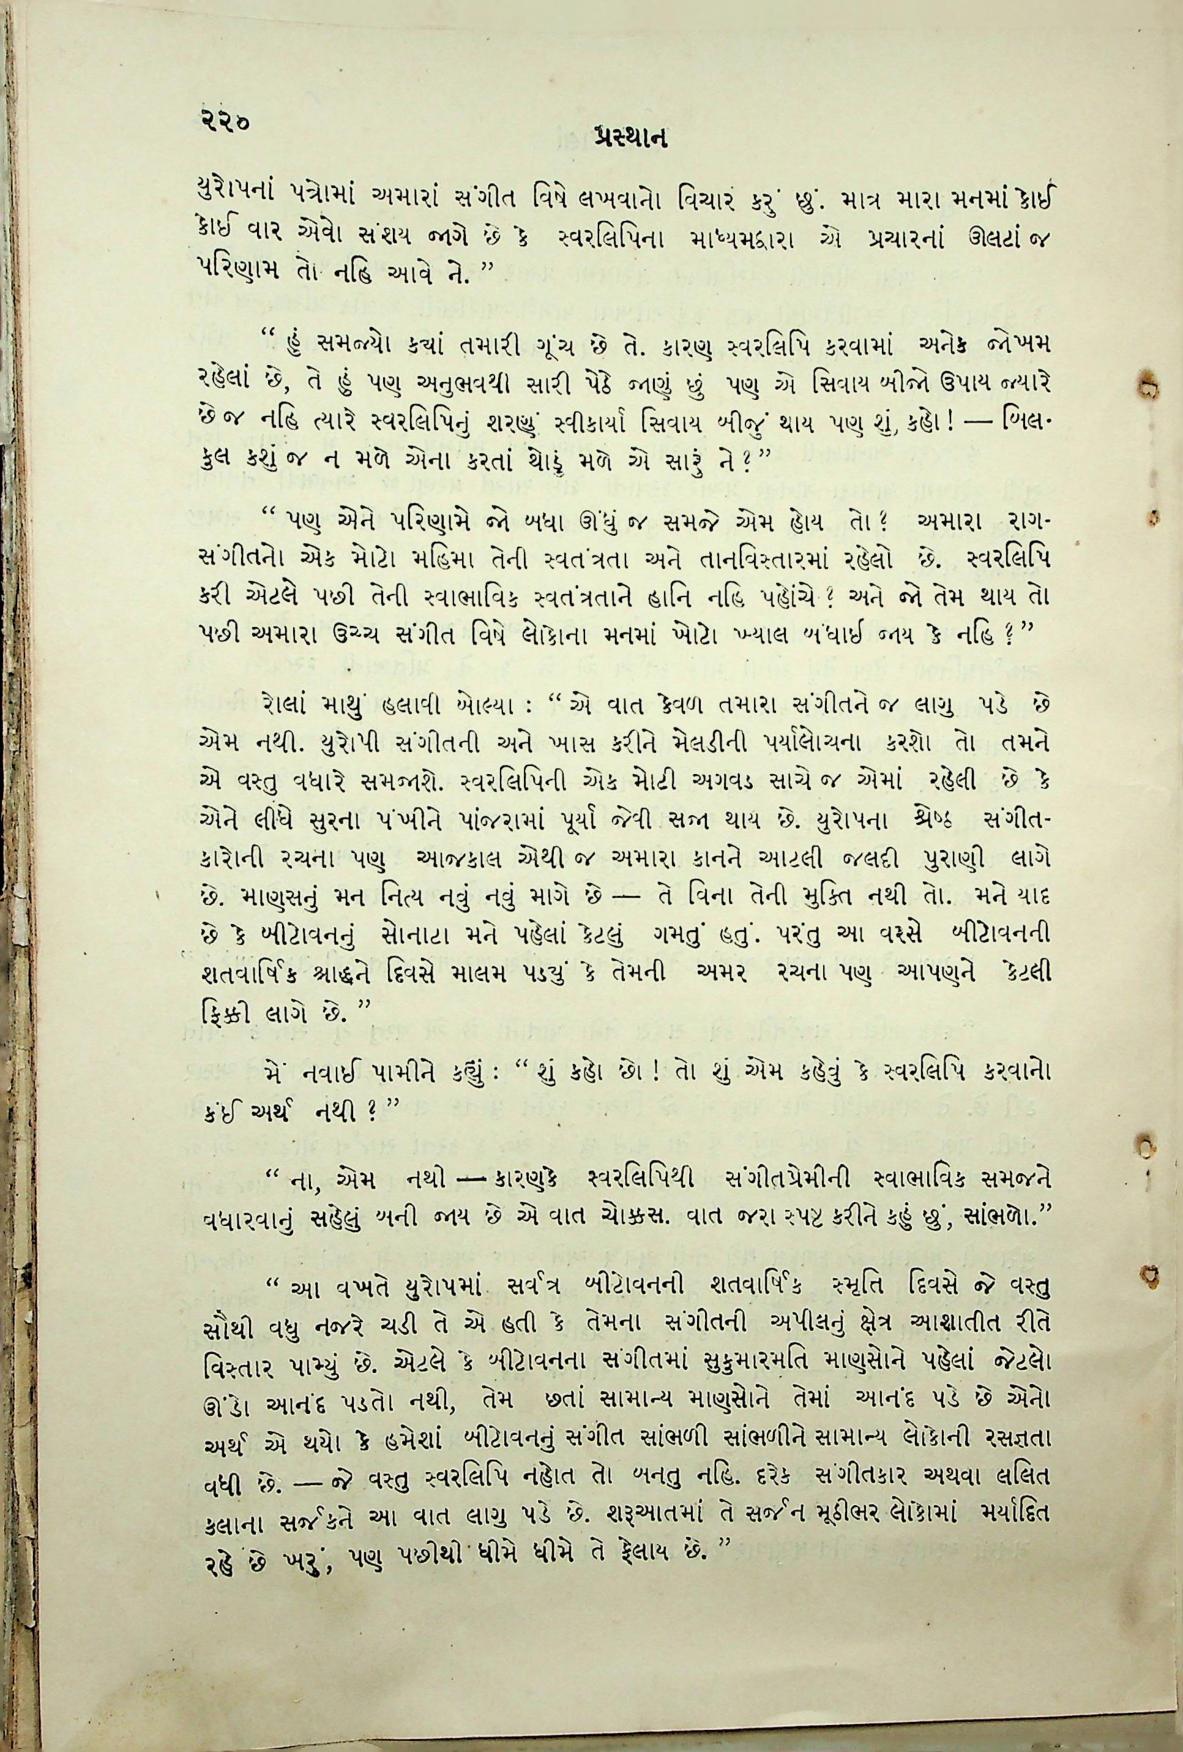 ૨૨૦
પ્રસ્થાન
યુરોપનાં પત્રોમાં અમારાં સંગીત વિષે લખવાનો વિચાર કરું છું. માત્ર મારા મનમાં કોઈ
કોઈ વાર એવો સંશય જાગે છે કે સ્વરલિપિના માધ્યમદ્વારા એ પ્રચારનાં ઊલટાં જ
પરિણામ તો નહિ આવે ને.”
“ હું સમજ્યો ક્યાં તમારી ગૂંચ છે તે. કારણ સ્વરલિપિ કરવામાં અનેક જોખમ
રહેલાં છે, તે હું પણ અનુભવથી સારી પેઠે જાણું છું પણ એ સિવાય બીજો ઉપાય જ્યારે
છે જ નહિ ત્યારે સ્વરલિપિનું શરણું સ્વીકાર્યા સિવાય બીજું થાય પણ શું, કહો! — બિલ-
કુલ કશું જ ન મળે એના કરતાં થોડું મળે એ સારું ને?”
“ પણ એને પરિણામે જો બધા ઊંધું જ સમજે એમ હોય તો? અમારા રાગ-
સંગીતનો એક મોટો મહિમા તેની સ્વતંત્રતા અને તાનવિસ્તારમાં રહેલો છે. સ્વરલિપિ
કરી એટલે પછી તેની સ્વાભાવિક સ્વતંત્રતાને હાનિ નહિ પહોંચે? અને જો તેમ થાય તો
પછી અમારા ઉચ્ચ સંગીત વિષે લોકોના મનમાં ખોટો ખ્યાલ બંધાઈ જાય કે નહિ?”
રોલાં માથું હલાવી બોલ્યા : “ એ વાત કેવળ તમારા સંગીતને જ લાગુ પડે છે
એમ નથી. યુરોપી સંગીતની અને ખાસ કરીને મેલડીની પર્યાલોચના કરશો તો તમને
એ વસ્તુ વધારે સમજાશે. સ્વરલિપિની એક મોટી અગવડ સાચે જ એમાં રહેલી છે કે
એને લીધે સુરના પંખીને પાંજરામાં પૂર્યા જેવી સજા થાય છે. યુરોપના શ્રેષ્ઠ સંગીત-
કારોની રચના પણ આજકાલ એથી જ અમારા કાનને આટલી જલદી પુરાણી લાગે
છે. માણસનું મન નિત્ય નવું નવું માગે છે — તે વિના તેની મુક્તિ નથી તો. મને યાદ
છે કે બીટોવનનું સોનાટા મને પહેલાં કેટલું ગમતું હતું. પરંતુ આ વરસે બીટોવનની
શતવાર્ષિક શ્રાદ્ધને દિવસે માલમ પડ્યું કે તેમની અમર રચના પણ આપણને કેટલી
ફિક્કી લાગે છે. ”
મેં નવાઈ પામીને કહ્યું : “ શું કહો છો! તો શું એમ કહેવું કે સ્વરલિપિ કરવાનો
કંઈ અર્થ નથી?”
“ ના, એમ નથી — કારણકે સ્વરલિપિથી સંગીતપ્રેમીની સ્વાભાવિક સમજને
વધારવાનું સહેલું બની જાય છે એ વાત ચોક્કસ. વાત જરા સ્પષ્ટ કરીને કહું છું, સાંભળો.”
“ આ વખતે યુરોપમાં સર્વત્ર બીટોવનની શતવાર્ષિક સ્મૃતિ દિવસે જે વસ્તુ
સૌથી વધુ નજરે ચડી તે એ હતી કે તેમના સંગીતની અપીલનું ક્ષેત્ર આશાતીત રીતે
વિસ્તાર પામ્યું છે. એટલે કે બીટોવનના સંગીતમાં સુકુમારમતિ માણસોને પહેલાં જેટલો
ઊંડો આનંદ પડતો નથી, તેમ છતાં સામાન્ય માણસોને તેમાં આનંદ પડે છે એનો
અર્થ એ થયો કે હમેશાં બીટોવનનું સંગીત સાંભળી સાંભળીને સામાન્ય લોકોની રસજ્ઞતા
વધી છે. — જે વસ્તુ સ્વરલિપિ નહોત તો બનતુ નહિ. દરેક સંગીતકાર અથવા લલિત
કલાના સર્જકને આ વાત લાગુ પડે છે. શરૂઆતમાં તે સર્જન મૂઠીભર લોકોમાં મર્યાદિત
રહે છે ખરું, પણ પછીથી ધીમે ધીમે તે ફેલાય છે. ”